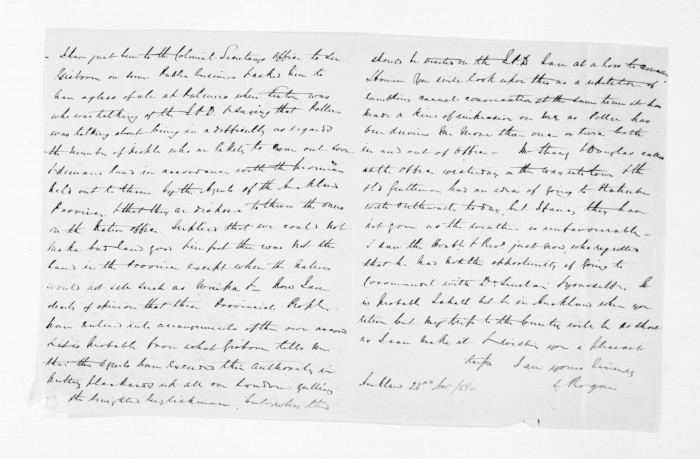 I have just been to the Colonial Secretarys Office to see
Gisborne on some Public business & asked him to
have a glass of ale at
who was talking of the & saying that Potter
was talking about being in a difficulty as regards
the number of People who are likely to come out here
& demand land in accordance with the promises
held out to them by the Agents of the Auckland
Province & that they are disposed to throw the onus
on the Native Office. I replied that we could not
make but land give him but there was not the
land in the Province except where the natives
would not sell such as Waipa &c. Now I am
clearly of opinion that these Provincial People
have entered into arrangements of their own accord
& it is probable from what Gisborne tells me
that the Agents have exceeded their authority in
putting placards up all over London gulling
the Englishman, but when this
should be on the I am at a loss to
However you will look upon this as a repetition of
rambling casual conversation at the same time it has
made a kind of impression on me as Potter has
been me more than once or twice both
in and out of Office. Mr Strang & Douglas called
at the Office yesterday on the way into town & the
old gentleman had an idea of going to
with Outhwaite today, but I fancy they have
not gone as the weather is unfavourable.
I saw the just now, who regretted
that he had not the opportunity of going to
Coromandel with Dr Sinclair & yourself. It
is probable I shall not be in Auckland when you
return but my trip to the Country will be as short
as I can make it. & wishing you a pleasant
trip I am yours sincerely
Rogan
Auckland 23rd